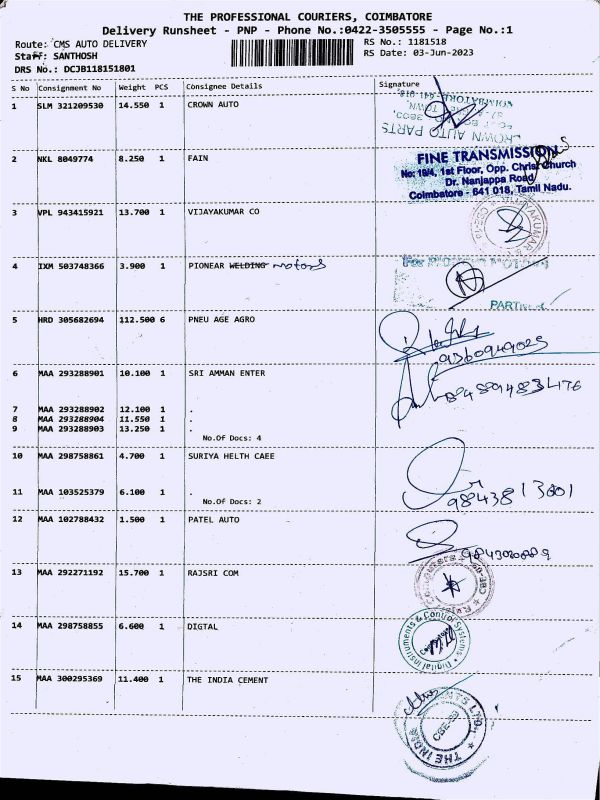 THE PROFESSIONAL COURIERS, COIMBATORE
Delivery Runsheet - PNP - Phone No.:0422-3505555 - Page No.:1
Route: CMS AUTO DELIVERY
RS No.: 1181518
Staff: SANTHOSH
RS Date: 03-Jun-2023
DRS No.: DCJB118151801
S No Consignment No Weight PCS Consignee Details Signature
1 SLM 321209530 14.550 1 CROWN AUTO
CROWN AUTO PARTS
2 NKL 8049774 8.250 1 FAIN
FINE TRANSMISSION
No: 19/4, 1st Floor, Opp. Christ Church
Dr. Nanjappa Road
Coimbatore - 641 018, Tamil Nadu.
3 VPL 943415921 13.700 1 VIJAYAKUMAR CO
4 IXM 503748366 3.900 1 PIONEAR WELDING motors
5 HRD 305682694 112.500 6 PNEU AGE AGRO
9360949025
6 MAA 293288901 10.100 1 SRI AMMAN ENTER
7 MAA 293288902 12.100 1 .
8 MAA 293288904 11.550 1 .
9 MAA 293288903 13.250 1 .
No.Of Docs: 4
10 MAA 298758861 4.700 1 SURIYA HELTH CAEE
11 MAA 103525379 6.100 1 .
No.Of Docs: 2
12 MAA 102788432 1.500 1 PATEL AUTO
13 MAA 292271192 15.700 1 RAJSRI COM
14 MAA 298758855 6.600 1 DIGTAL
Digital Instruments & Control Systems
15 MAA 300295369 11.400 1 THE INDIA CEMENT